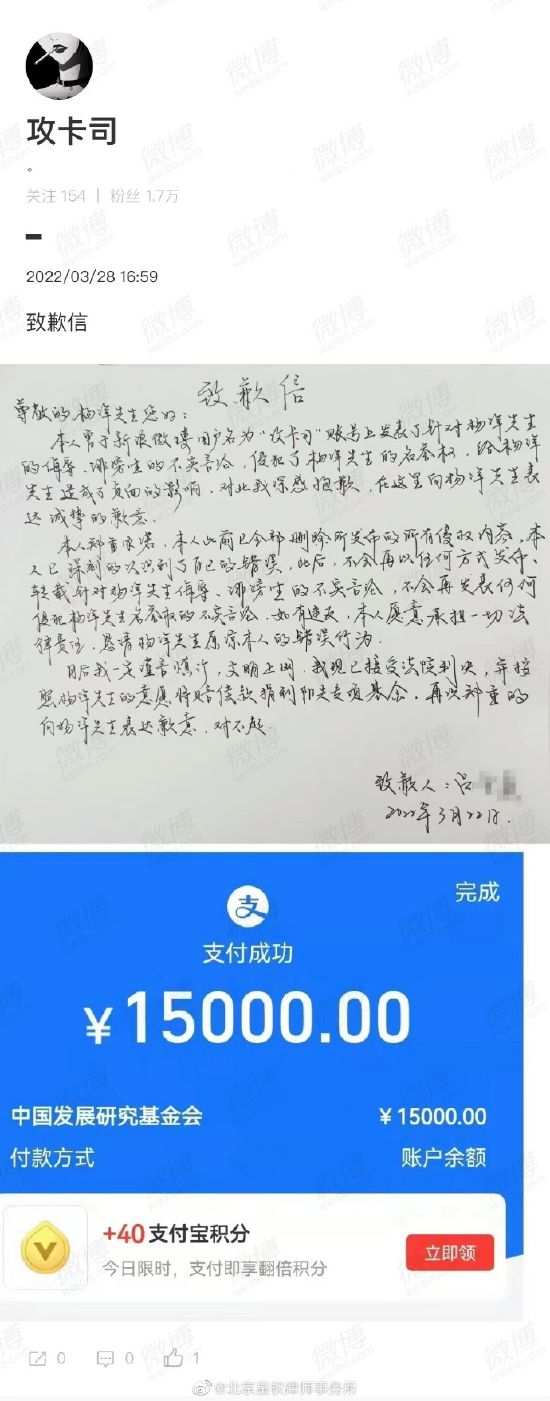 攻卡司
。
关注 154 | 粉丝 1.7万
2022/03/28 16:59
致歉信
致歉信
尊敬的杨洋先生您好：
本人曾于新浪微博用户名为“攻卡司”账号上发表了针对杨洋先生
的侮辱、诽谤性的不实言论，侵犯了杨洋先生的名誉权，给杨洋
先生造成了负面的影响，对此我深感抱歉，在这里向杨洋先生表
达诚挚的歉意。
本人郑重承诺，本人此前已全部删除所发布的所有侵权内容，本
人已深刻的认识到了自己的错误，此后，不会再以任何方式发布、
转载针对杨洋先生侮辱、诽谤性的不实言论，不会再发表任何
侵犯杨洋先生名誉权的不实言论，如有违反，本人愿意承担一切法
律责任，恳请杨洋先生原谅本人的错误行为。
日后我一定谨言慎行，文明上网，我现已接受法院判决，并按
照杨洋先生的意愿将赔偿款捐到阳光专项基金会，再次郑重的
向杨洋先生表达歉意，对不起
致歉人：吕
2022年3月22日.
完成
支
支付成功
¥15000.00
中国发展研究基金会 ¥15000.00
付款方式 账户余额
+40支付宝积分
今日限时，支付即享翻倍积分
立即领
0 0 1
@北京星权律师事务所
微博
weibo.com